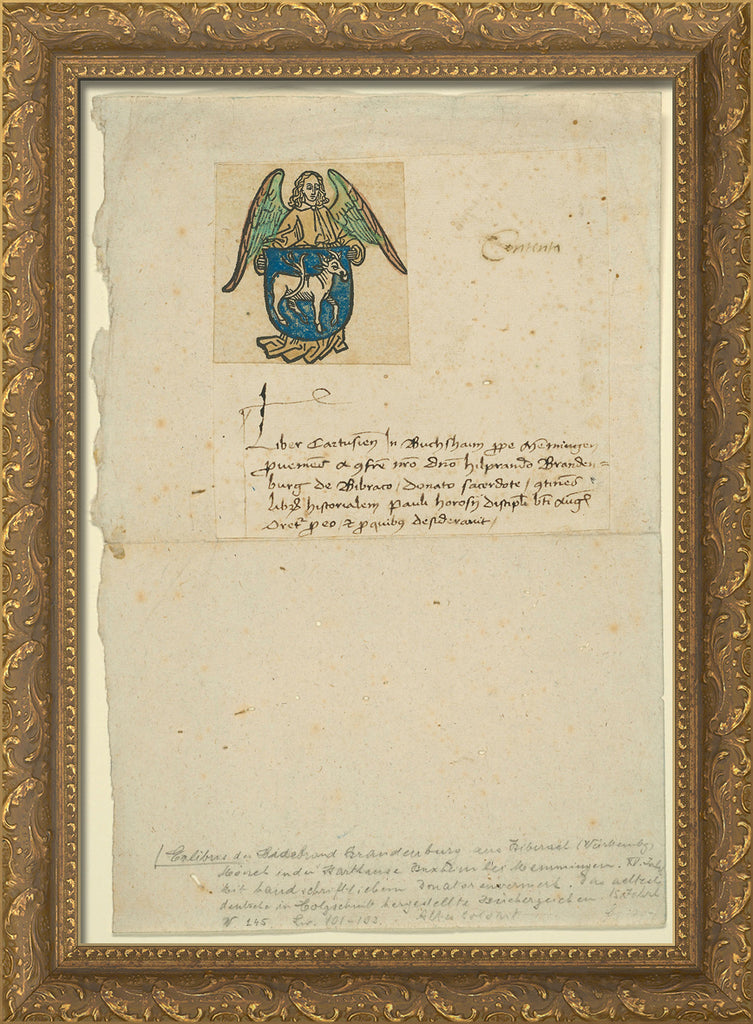 Contenta
Liber Cartusien̄ In Buchshaim ꝓpe Mēmingen
ꝓveniēs a ꝯfrē nr̄o dn̄o hilprando Branden=
burg de Bibraco, Donato sacerdote, ꝯtinēs
libꝝ historialem Pauli horosij discipl̄i bt̄i Aug᷒
Oretꝛ ꝓ eo, et ꝓ quibꝰ desideravit,
Exlibris des Hildebrand Brandenburg aus Biberach (Württembg)
Mönch in der Karthause Buxheim bei Memmingen. XV.
Mit handschriftlichem Donatorenvermerk. Das aelteste
deutsche in Holzschnitt hergestellte Buecherzeichen.
W 145 101-102